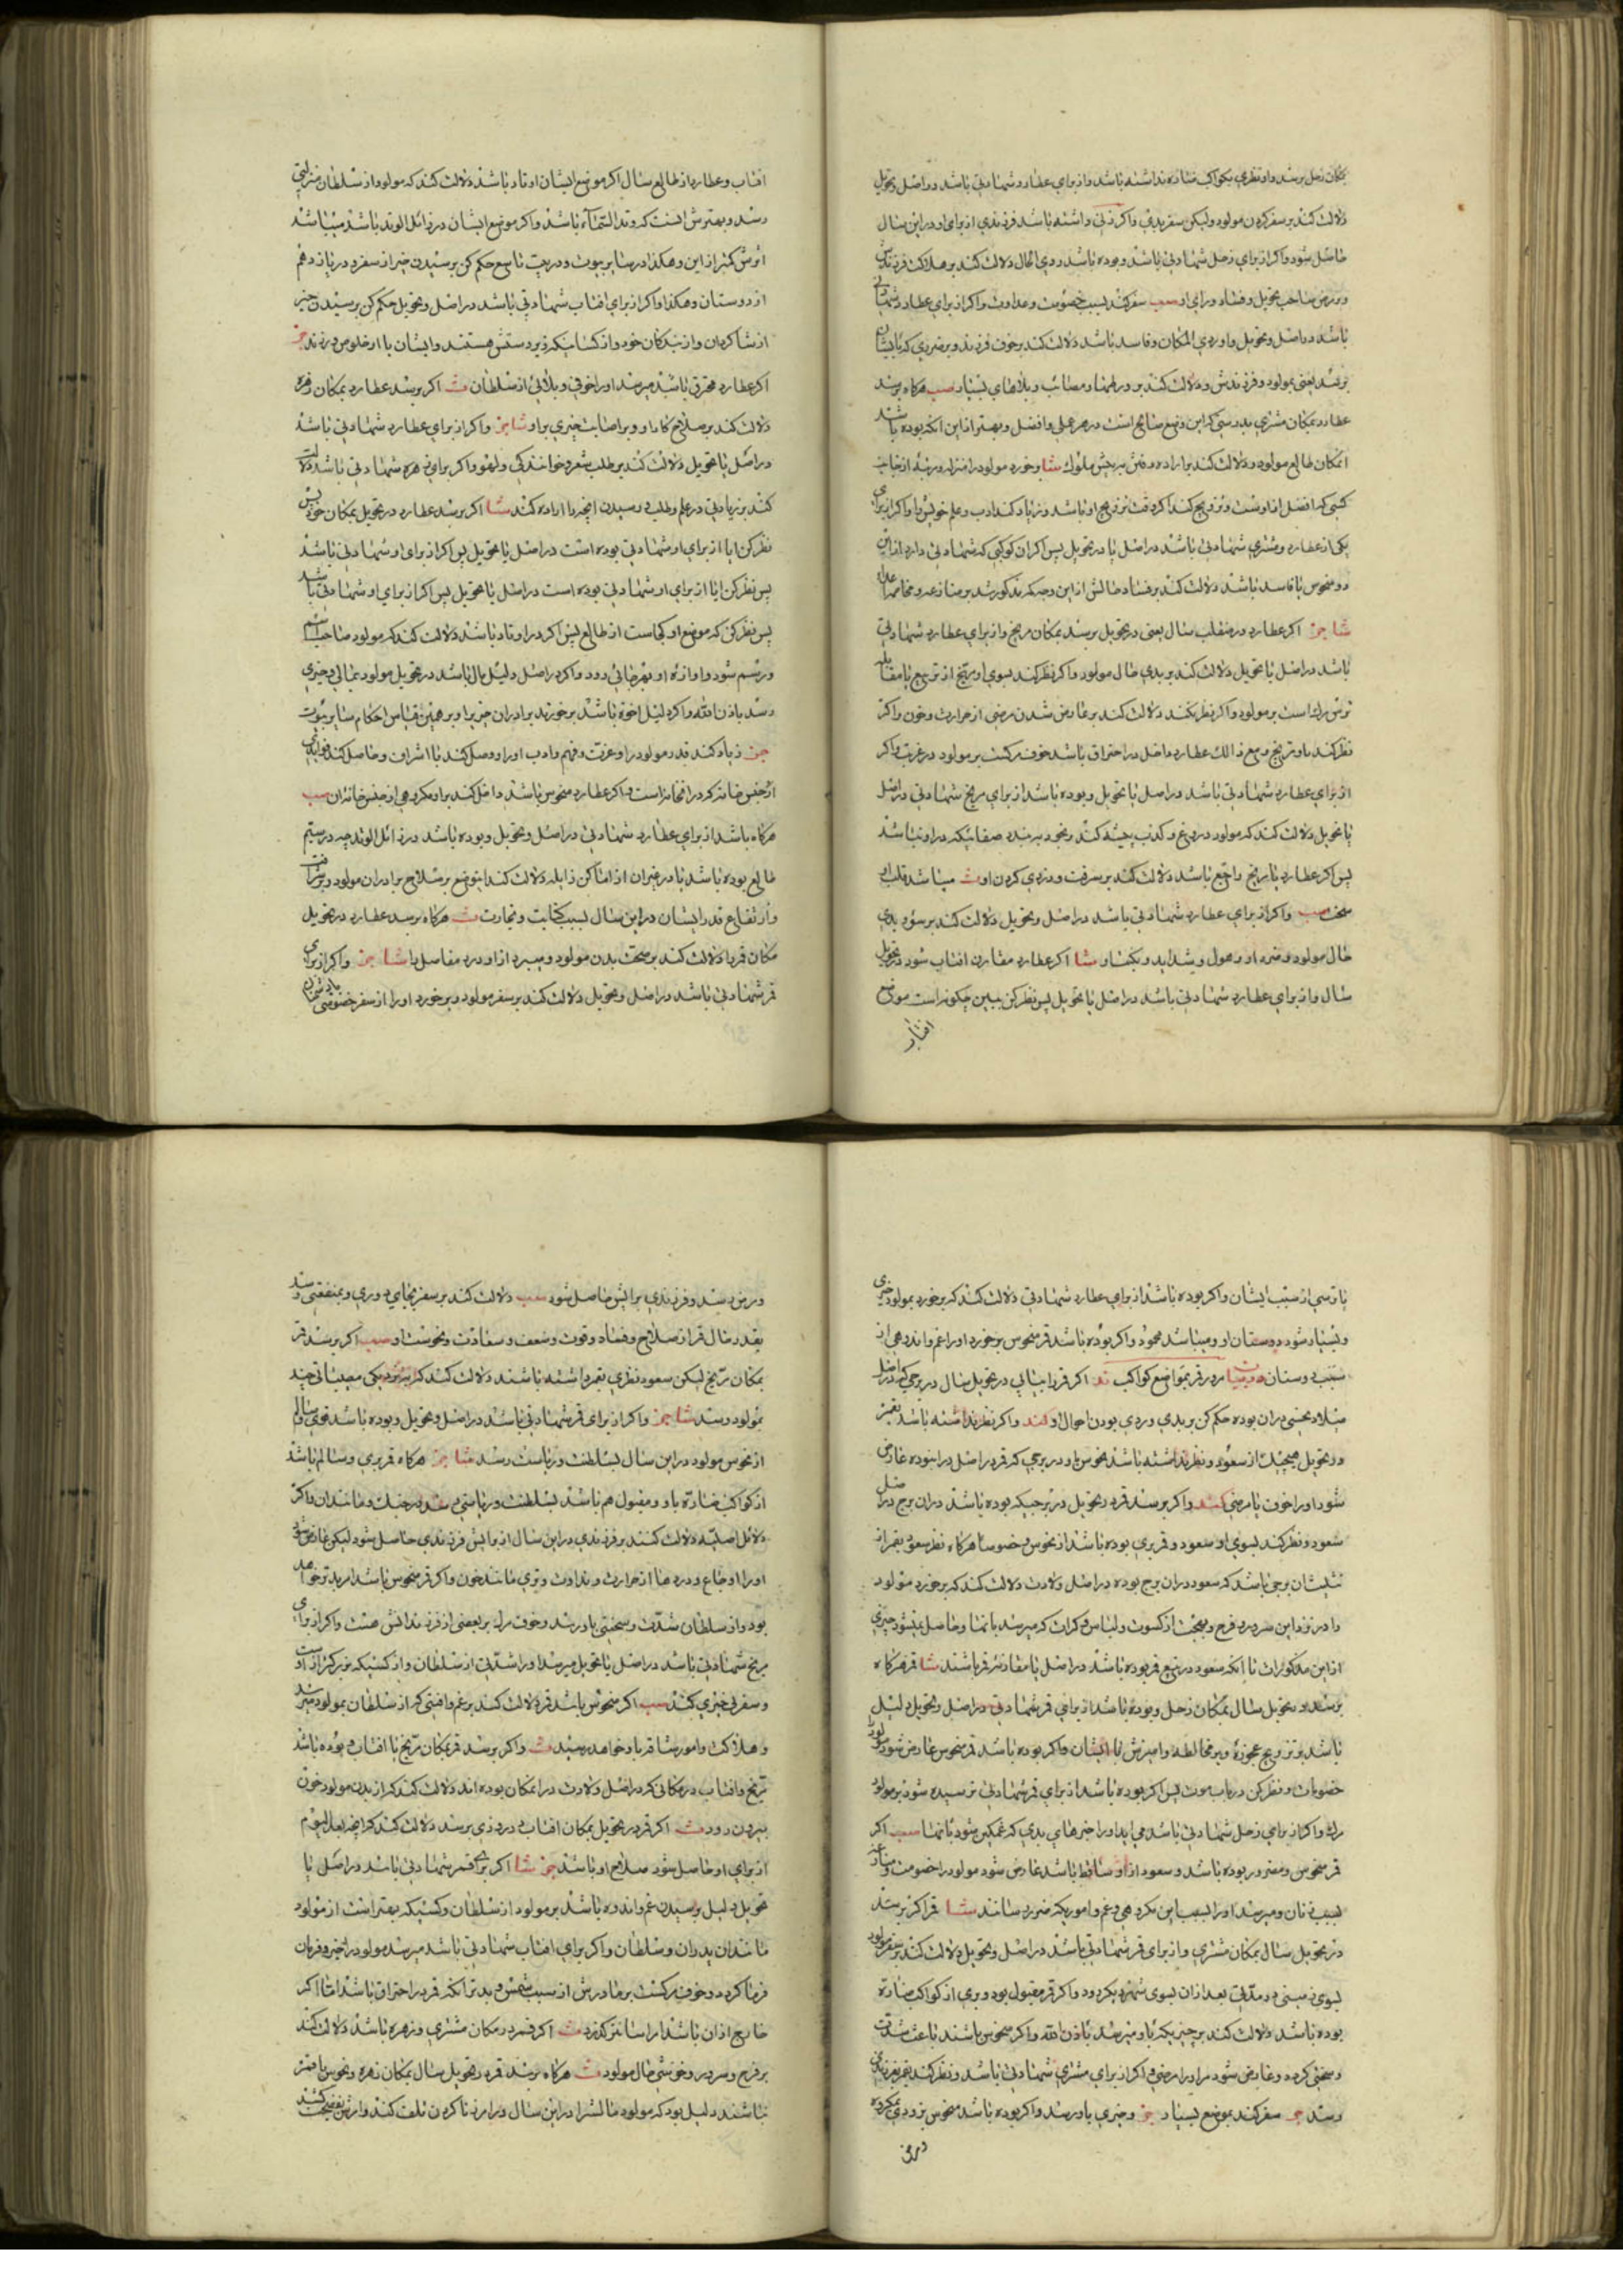 بمکان زحل برسد و او نظری بکواکب مضاره نداشته باشد و از برای عطارد شهادتی باشد در اصل و تحویل
دلالت کند بر سفر کردن مولود ولیکن سفر بدی و اکر زنی داشته باشد فرزندی از برای او در این سال
حاصل شود و اکر از برای زحل شهادتی باشد و بوده باشد ردی الحال دلالت کند بر هلاکت فرزندش
و مرض صاحب تحویل و فساد و رای او سفر کند بسبب خصومت و عداوت و اکر از برای عطارد شهادتی
باشد در اصل و تحویل و او ردی المکان و فاسد باشد دلالت کند بر خوف فرزند و بر ضرری که بایشان
برسد یعنی بمولود و فرزندش و دلالت کند بر ورطها و مصائب و بلاهای بسیار صب هرکاه برسد
عطارد بمکان مشتری بدرستی که این وضع صالح است در هر عملی و افضل و بهتر از این آنکه بوده باشد
آنمکان طالع مولود و دلالت کند بر اراده رفتن به پیش ملوک شا و خورد مولود را منزله و رتبه از جانب
کسی که افضل از اوست و تزویج کند اکر وقت تزویج او باشد و زیاد کند ادب و علم خویش را و اکر از برای
یکی از عطارد و مشتری شهادتی باشد در اصل یا در تحویل پس اکر آن کوکبی که شهادتی دارد از این
دو منحوس یا فاسد باشد دلالت کند بر فساد حالش از این وجه که مذکور شد بر منازعه و مخاصمه
شا جز اکر عطارد در منقلب سال یعنی در تحویل برسد بمکان مریخ و از برای عطارد شهادتی
باشد در اصل یا تحویل دلالت کند بر بدی حال مولود و اکر نظر کند بسوی او مریخ از تربیع یا مقابله
ترس مرک است بر مولود و اکر نظر نکند دلالت کند بر عارض شدن مرضی از حرارت و خون و اکر
نظر کند باو مریخ و مع ذالک عطارد داخل در احتراق باشد خوف مرکست بر مولود در غربت و اکر
از برای عطارد شهادتی باشد در اصل یا تحویل و بوده باشد از برای مریخ شهادتی در اصل
یا تحویل دلالت کند که مولود دروغ و کذب پیشه کند و بخود به بندد صفاتیکه در او نباشد
پس اکر عطارد با مریخ راجع باشد دلالت کند بر سرقت و دزدی کردن او ث میباشد قلب او
سخت صب و اکر از برای عطارد شهادتی باشد در اصل و تحویل دلالت کند بر سؤ و بدی
حال مولود و ضرر او و هول و شداید و یکفناو شا اکر عطارد مقارن افتاب شود در تحویل
سال و از برای عطارد شهادتی باشد در اصل یا تحویل پس نظر کن ببین چکونه است موضع
افتاب
افتاب و عطارد از طالع سال اکر موضع ایشان اوتاد باشد دلالت کند که مولود از سلطان منزلتی
رسد و بهترش انست که وتد السماء باشد و اکر موضع ایشان در زائل الوتد باشد میباشد
اثرش کمتر از این و هکذا در سایر بیوت و در بیت تاسع حکم کن برسیدن خبر از سفر و در یازدهم
از دوستان و هکذا و اکر از برای افتاب شهادتی باشد در اصل و تحویل حکم کن برسیدن خبر
از شاکردان و از بندکان خود و از کسانیکه زیردستش هستند و ایشان با او خلوص ورزند جز
اکر عطارد محترق باشد میرسد او را خوفی و بلائی از سلطان ث اکر برسد عطارد بمکان زهره
دلالت کند بر صلاح کار او و بر اصابت خیری بر او شا جز و اکر از برای عطارد شهادتی باشد
در اصل یا تحویل دلالت کند بر طلب شعر و خوانندکی و لهو و اکر برای زهره شهادتی باشد دلالت
کند بر زیادتی در علم و طلب و رسیدن انچه را اراده کند شا اکر برسد عطارد در تحویل بمکان خود پس
نظر کن ایا از برای او شهادتی بوده است در اصل یا تحویل پس اکر از برای او شهادتی باشد
پس نظر کن ایا از برای او شهادتی بوده است در اصل یا تحویل پس اکر از برای او شهادتی باشد
پس نظر کن که موضع او کجاست از طالع پس اکر در اوتاد باشد دلالت کند که مولود صاحب اسم
و رسم شود و اوازهٔ او بهر جائی رود و اکر در اصل دلیل مال باشد در تحویل مولود بمالی و خیری
رسد باذن الله و اکر دلیل اخوة باشد بر خورند برادران خیر برا و بر همین قیاس احکام سایر بیوت
جز زیاد کند قدر مولود را و عزّت و فهم و ادب او را و وصل کند با اشراف و حاصل کند فوایدی
از جنس خانه که در انخانه است و اکر عطارد منحوس باشد داخل کند بر او مکروهی از جنس خانه ان صب
هرکاه باشد از برای عطارد شهادتی در اصل و تحویل و بوده باشد در زائل الوتد چه در سیّم
طالع بوده باشد یا در غیر ان از اماکن زایله دلالت کند اینوضع بر صلاح برادران مولود و بر شرافت
و ارتفاع قدر ایشان در این سال بسبب کتابت و تجارت ث هرکاه برسد عطارد در تحویل
مکان قمر را دلالت کند بر صحّت بدن مولود و میبرد از او درد مفاصل را شا جز و اکر از برای
قمر شهادتی باشد در اصل و تحویل دلالت کند بر سفر مولود و بر خورد او را از سفر خصومتی
یا ترسی از سبب ایشان و اکر بوده باشد از برای عطارد شهادتی دلالت کند که بر خورد بمولود خیری
و بسیار شود دوستان او و میباشد محمود و اکر بوده باشد قمر منحوس بر خورد او را غم و اندوهی از
سبب دوستان مرور قمر بمواضع کواکب ند اکر قمر را بیابی در تحویل سال در برجی که در اصل
میلاد نحسی در ان بوده حکم کن بر بدی و ردی بودن احوال او کند و اکر نظر نداشته باشد بقمر
در تحویل هیچیک از سعود و نظر داشته باشد نحوس باو در برجی که قمر در اصل در انبوده عارض
شود او را خوف یا مرضی کند و اکر برسد قمر در تحویل در برجیکه بوده باشد در ان برج در اصل
سعود و نظر کند بسوی او سعود و قمر بری بوده باشد از نحوس و خصوصا هرکاه نظر سعود بقمر از
تثلیث ان برجی باشد که سعود در ان برج بوده در اصل ولادت دلالت کند که بر خورد مولود
را در نزد این سرور و فرح و بهجت از کسوت و لباس و کرامت که میرسد بانها و حاصل نمیشود چیزی
از این مذکورات تا آنکه سعود در تربیع قمر بوده باشد در اصل یا مقارن قمر باشند شا قمر هرکاه
برسد در تحویل سال بمکان زحل و بوده باشد از برای قمر شهادتی در اصل و تحویل دلیل
باشد بر تزویج عجوزه و بر مخالطه و امیزش با ایشان و اکر بوده باشد قمر منحوس عارض شود مولود را
خصومات و نظر کن در باب موت پس اکر بوده باشد از برای قمر شهادتی ترسیده شود بر مولود
مرک و اکر از برای زحل شهادتی باشد می اید او را خبرهای بدی که غمکین شود بانها صب اکر
قمر منحوس و مضرور بوده باشد و سعود از او ساقط باشد عارض شود مولود را خصومت و منازعه
بسبب زنان و میرسد او را بسبب این مکروهی و غم و اموریکه ضرر رسانند شا قمر اکر برسد
در تحویل سال بمکان مشتری و از برای قمر شهادتی باشد در اصل و تحویل دلالت کند بر سفر مولود
بسوی زمینی و مدّتی بعد از ان بسوی شهر دیکر رود و اکر قمر مقبول بود و بری از کواکب مضاره
بوده باشد دلالت کند بر چیزیکه باو میرسد باذن الله و اکر منحوس باشند باعث شدّت
و سختی کردد و عارض شود مر او را مرضی و اکر از برای مشتری شهادتی باشد و نظر کند بقمر بفرزندی
رسد جز سفر کند بموضع بسیار جز و خیری باو رسد و اکر بوده باشد منحوس بزودی بمکروه
ومرض
و مرض رسد و فرزندی برایش حاصل شود صب دلالت کند بر سفر بجای دوری و بمنفعتی رسد
بقدر حال قمر از صلاح و فساد و قوت و ضعف و سعادت و نحوست او صب اکر برسد قمر
بمکان مریخ لیکن سعود نظری بقمر داشته باشند دلالت کند که بزودیکی مصیباتی چند
بمولود رسد شا جز و اکر از برای قمر شهادتی باشد در اصل و تحویل و بوده باشد قوی و سالم
از نحوس مولود در این سال بسلطنت و ریاست رسد شا جز هرکاه قمر بری و سالم باشد
از کواکب مضارّه باو و مقبول هم باشد بسلطنت و ریاستی رسد در جنک و مانند ان و اکر
دلائل اصلیّه دلالت کنند بر فرزندی در این سال از برایش فرزندی حاصل شود لیکن عارض شود
او را اوجاع و دردها از حرارت و نداوت و تری مانند خون و اکر قمر منحوس باشد امر بدتر خواهد
بود و از سلطان شدّت و سختی باو رسد و خوف مرک بر بعضی از فرزندانش هست و اکر از برای
مریخ شهادتی باشد در اصل یا تحویل میرسد او را شدّتی از سلطان و از کسیکه بزرکتر از اوست
و سفر بی خیری کند صب اکر منحوس باشد قمر دلالت کند بر غم و افتی که از سلطان بمولود میرسد
و هلاکت و امور شاقه باو خواهد رسید ث و اکر برسد قمر بمکان مریخ با افتاب و بوده باشد
مریخ و افتاب در مکانی که در اصل ولادت در انمکان بوده اند دلالت کند که از بدن مولود خون
بیرون رود ث اکر قمر در تحویل بمکان افتاب و در دزدی برسد دلالت کند که انچه بعد الیوم
از برای او حاصل شود صلاح او باشد جز شا اکر برای قمر شهادتی باشد در اصل یا
تحویل دلیل برسیدن غم و اندوه باشد بر مولود از سلطان و کسیکه بهتر است از مولود
مانند ان پدران و سلطان و اکر برای افتاب شهادتی باشد میرسد مولود را خیر و فرمان
فرما کردد و خوف مرکست بر مادرش از سبب شمس و بدتر آنکه قمر در احتراق باشد امّا اکر
خارج از ان باشد امر اسانتر کذرد ث اکر قمر در مکان مشتری و زهره باشد دلالت کند
بر فرح و سرور و خوشی حال مولود ث هرکاه برسد قمر در تحویل سال بمکان زهره و نحوس با قمر
نباشند دلیل بود که مولود مالش را در این سال در امر زنا کردن تلف کند و از بعضی کشد